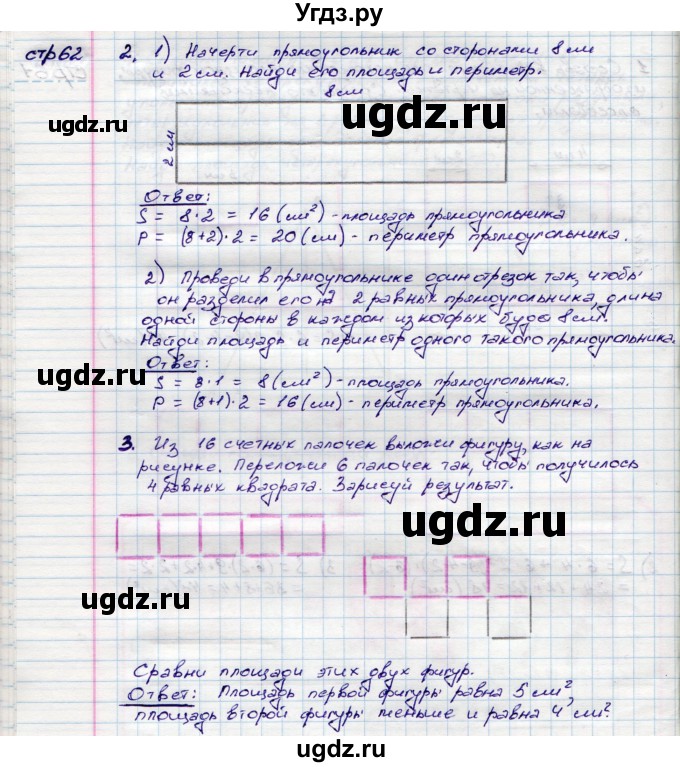 Угдз.ру
стр 62
2. 1) Начерти прямоугольник со сторонами 8 см
и 2 см. Найди его площадь и периметр.
8 см
ugdz.ru
ugdz.ru
2 см
Ответ:
S = 8·2 = 16 (см²) - площадь прямоугольника
P = (8+2)·2 = 20 (см) - периметр прямоугольника.
2) Проведи в прямоугольнике один отрезок так, чтобы
он разделил его на 2 равных прямоугольника, длина
ugdz.ru
одной стороны в каждом из которых буде 8 см.
Найди площадь и периметр одного такого прямоугольника.
Ответ:
ugdz.ru
ugdz.ru
S = 8·1 = 8 (см²) - площадь прямоугольника.
P = (8+1)·2 = 16 (см) - периметр прямоугольника.
3. Из 16 счетных палочек выложи фигуру, как на
рисунке. Переложи 6 палочек так, чтобы получилось
4 равных квадрата. Зарисуй результат.
ugdz.ru
ugdz.ru
Сравни площади этих двух фигур.
ugdz.ru
Ответ: Площадь первой фигуры равна 5 см²,
площадь второй фигуры меньше и равна 4 см².
ugdz.ru